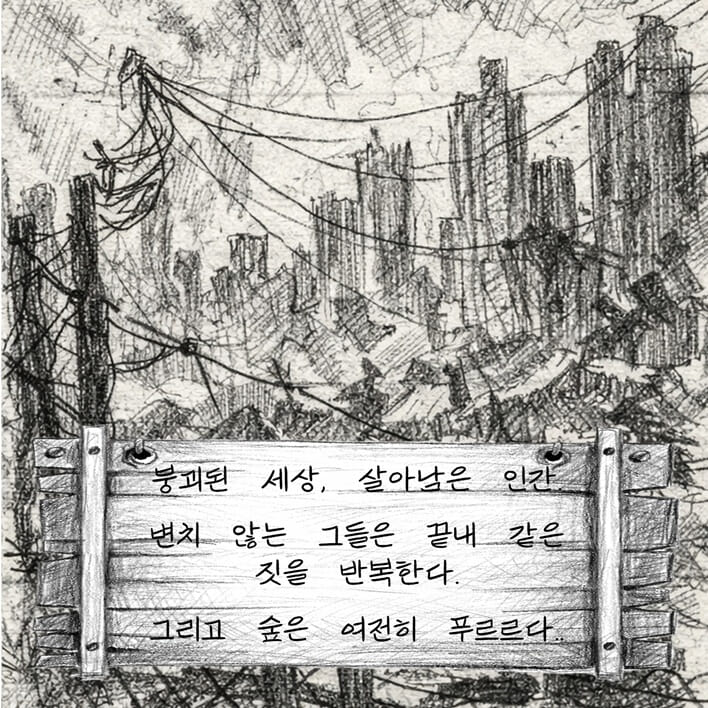 붕괴된 세상, 살아남은 인간.
변치 않는 그들은 끝내 같은
짓을 반복한다.
그리고 숲은 여전히 푸르르다..